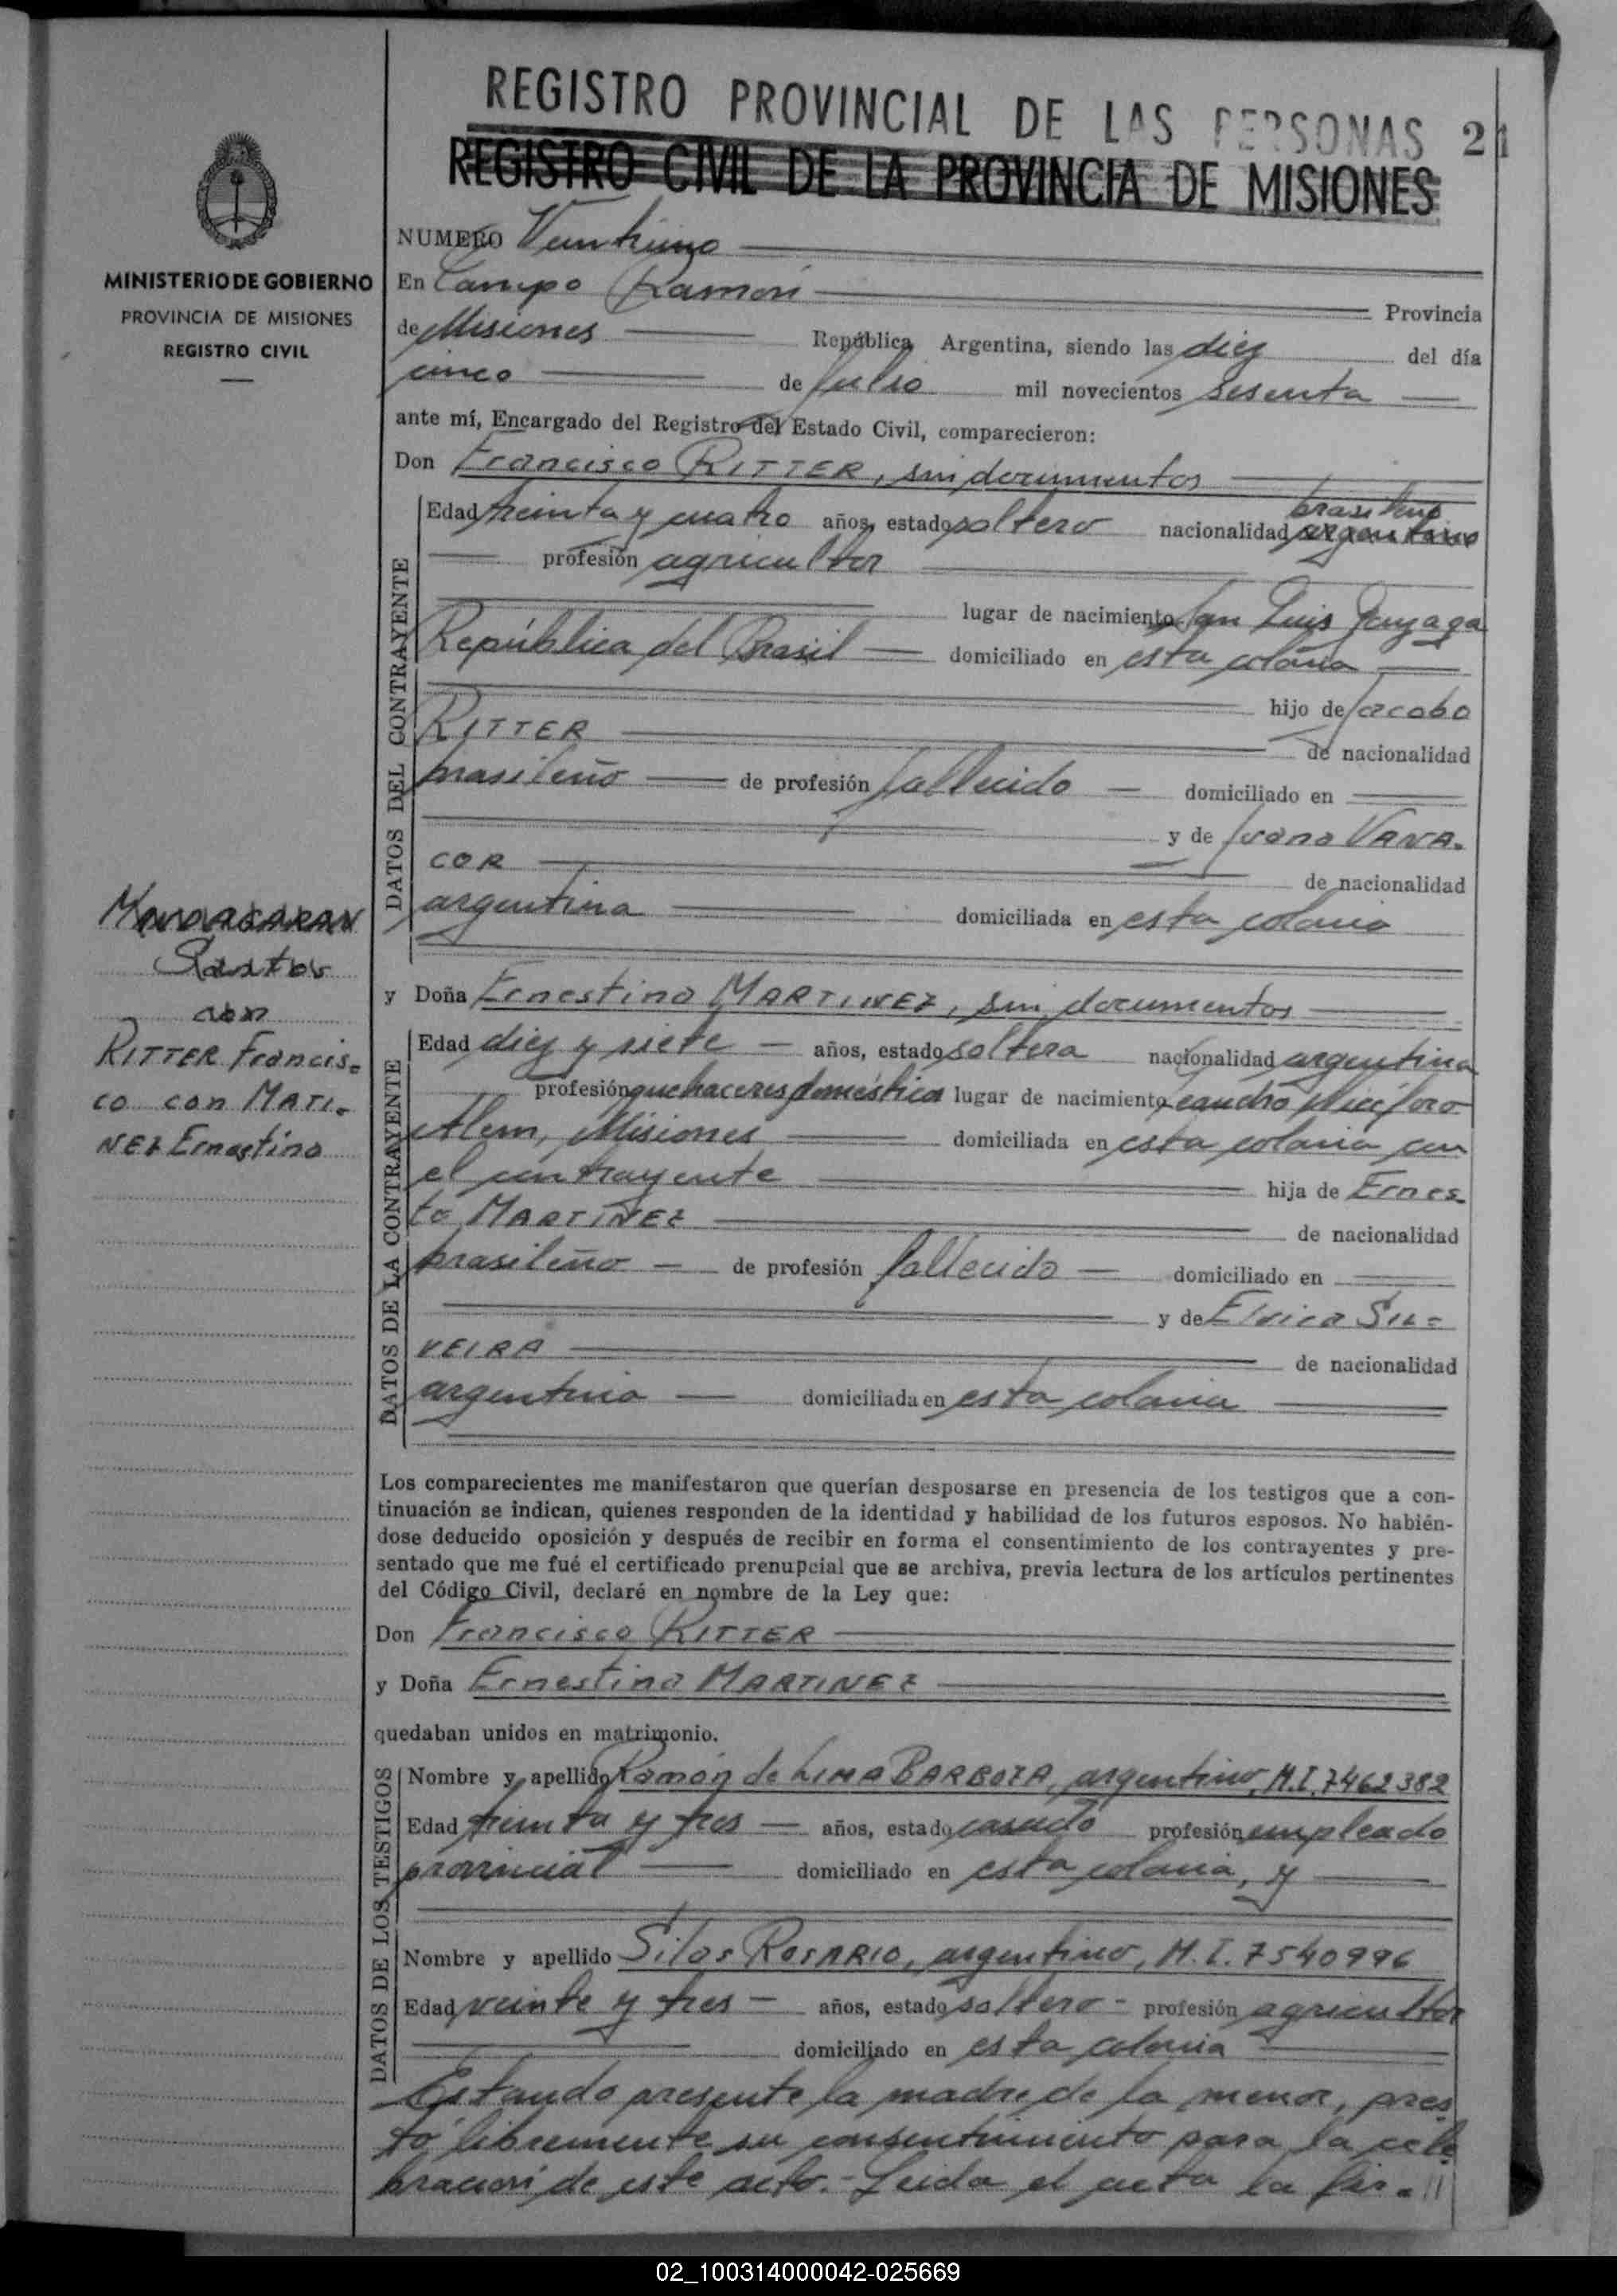 REGISTRO PROVINCIAL DE LAS PERSONAS 21
REGISTRO CIVIL DE LA PROVINCIA DE MISIONES
MINISTERIO DE GOBIERNO
PROVINCIA DE MISIONES
REGISTRO CIVIL
NUMERO Veintiuno
En Campo Ramón Provincia
de Misiones República Argentina, siendo las diez del día
cinco de Julio mil novecientos sesenta
ante mí, Encargado del Registro del Estado Civil, comparecieron:
Don Francisco RITTER, sin documentos
brasileño
Edad treinta y cuatro años, estado soltero nacionalidad argentino
profesión agricultor
lugar de nacimiento San Luis Gonzaga
República del Brasil domiciliado en esta colonia
hijo de Jacobo
RITTER de nacionalidad
brasileño de profesión fallecido domiciliado en
y de Juana VANA-
COR de nacionalidad
argentina domiciliada en esta colonia
DATOS DEL CONTRAYENTE
Santos
con
RITTER Francis-
co con MATI-
NEZ Ernestina
y Doña Ernestina MARTINEZ, sin documentos
Edad diez y siete años, estado soltera nacionalidad argentina
profesión quehaceres domésticos lugar de nacimiento Leandro Nicéforo
Alem, Misiones domiciliada en esta colonia con
el contrayente hija de Ernes-
to MARTÍNEZ de nacionalidad
brasileño de profesión fallecido domiciliado en
y de Elvira SIL-
VEIRA de nacionalidad
argentina domiciliada en esta colonia
DATOS DE LA CONTRAYENTE
Los comparecientes me manifestaron que querían desposarse en presencia de los testigos que a con-
tinuación se indican, quienes responden de la identidad y habilidad de los futuros esposos. No habién-
dose deducido oposición y después de recibir en forma el consentimiento de los contrayentes y pre-
sentado que me fué el certificado prenupcial que se archiva, previa lectura de los artículos pertinentes
del Código Civil, declaré en nombre de la Ley que:
Don Francisco RITTER
y Doña Ernestina MARTINEZ
quedaban unidos en matrimonio.
Nombre y apellido Ramón de LIMA BARBOZA, argentino, M.I. 7462382
Edad treinta y tres años, estado casado profesión empleado
provincial domiciliado en esta colonia, y
Nombre y apellido Silas ROSARIO, argentino, M.I. 7540996
Edad veinte y tres años, estado soltero profesión agricultor
domiciliado en esta colonia
DATOS DE LOS TESTIGOS
Estando presente la madre de la menor, pres
tó libremente su consentimiento para la cele
bración de este acto.- Leida el acta la fir-//
02_100314000042-025669